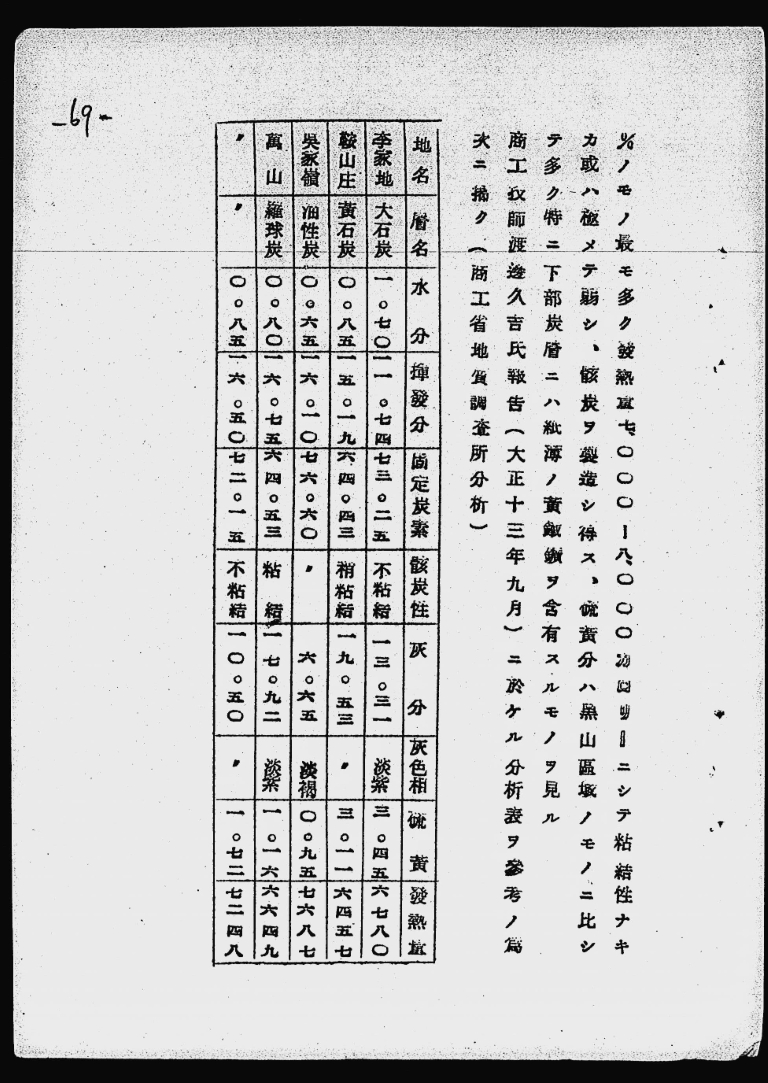 -69-
%ノモノ最モ多ク發熱量七、〇〇〇ー八、〇〇〇カロリーニシテ粘結性ナキ
カ或ハ極メテ弱シ、骸炭ヲ製造シ得ス、硫黄分ハ黒山區域ノモノニ比シ
テ多ク特ニ下部炭層ニハ紙薄ノ黄鐵鑛ヲ含有スルモノヲ見ル
商工技師渡邊久吉氏報告(大正十三年九月)ニ於ケル分析表ヲ參考ノ爲
次ニ掲ク(商工省地質調査所分析)
地名 層名 水分 揮發分 固定炭素 骸炭性 灰分 灰色相 硫黄 發熱量
李家地 大石炭 一。七〇 一一。七四 七三。二五 不粘結 一三。三一 淡紫 三。四五 六七八〇
鞍山庄 黄石炭 〇。八五 一五。一九 六四。四三 稍粘結 一九。五三 〃 三。一一 六四五七
吳家嶺 油性炭 〇。六五 一六。一〇 七六。六〇 〃 六。六五 淡褐 〇。九五 七六八七
萬山 羅球炭 〇。八〇 一六。七五 六四。五三 粘結 一七。九二 淡紫 一。一六 六六四九
〃 〃 〇。八五 一六。五〇 七二。一五 不粘結 一〇。五〇 〃 一。七二 七二四八